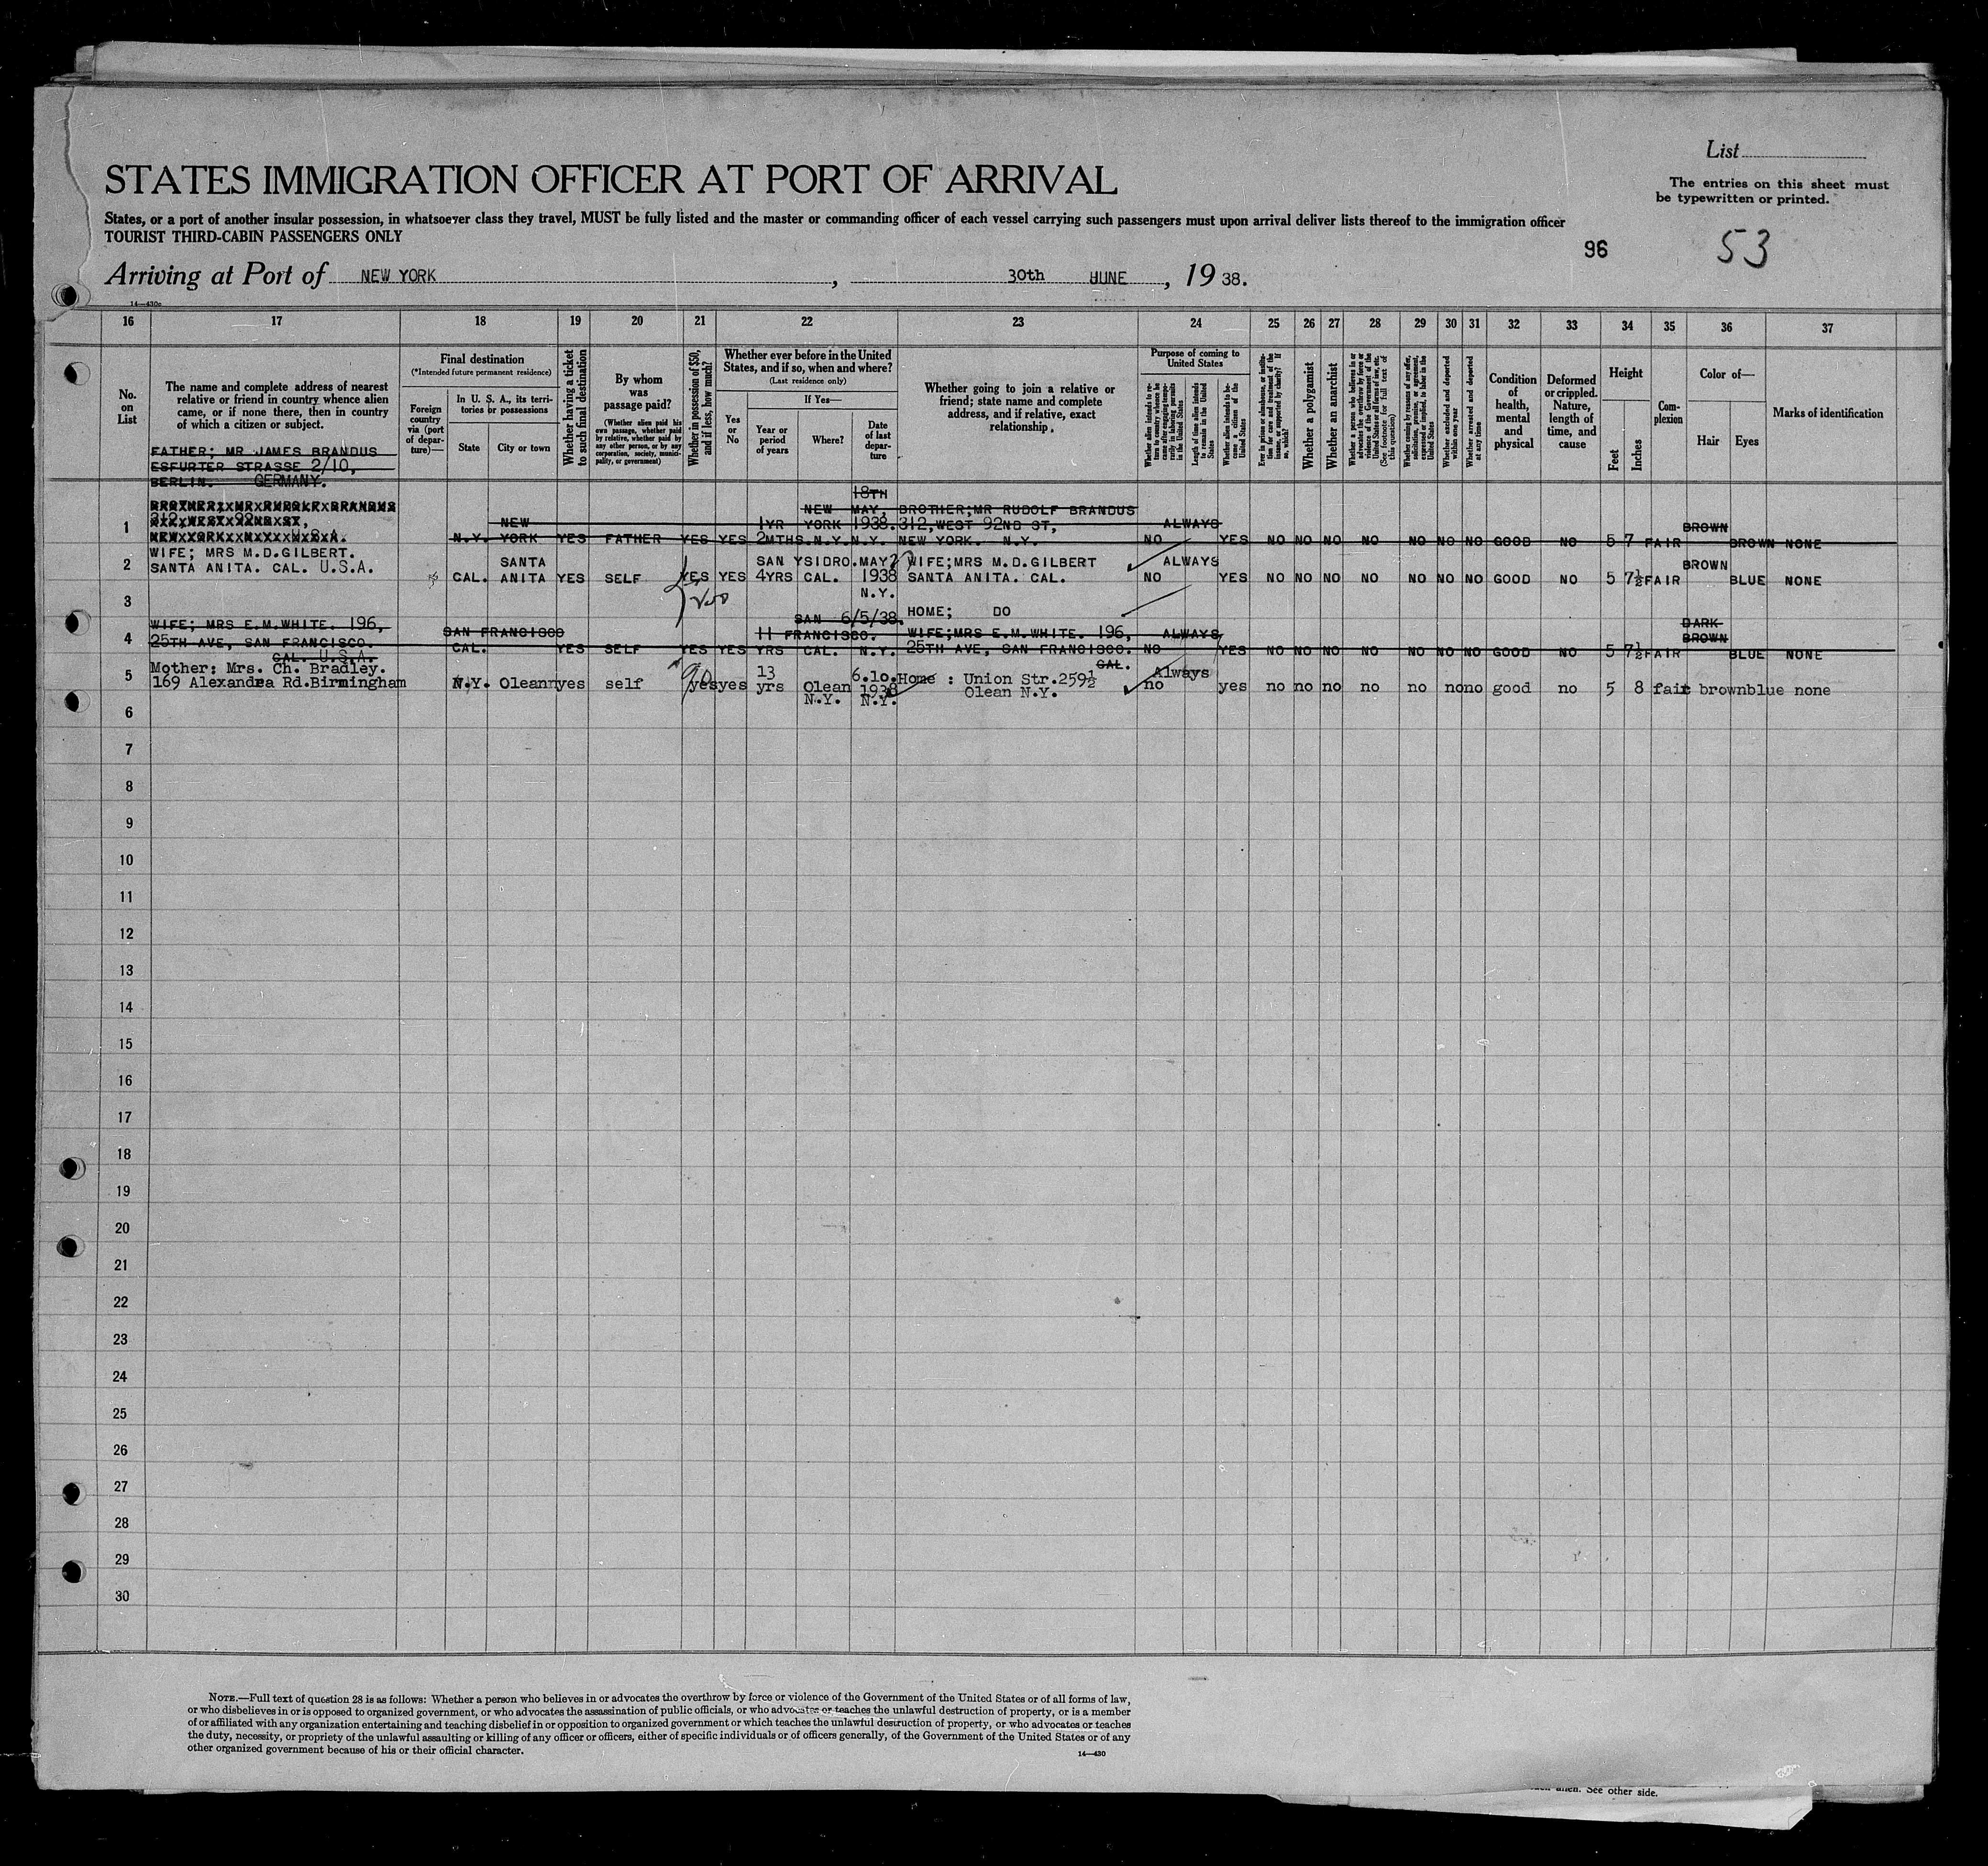 List
The entries on this sheet must
be typewritten or printed.
STATES IMMIGRATION OFFICER AT PORT OF ARRIVAL
States, or a port of another insular possession, in whatsoever class they travel, MUST be fully listed and the master or commanding officer of each vessel carrying such passengers must upon arrival deliver lists thereof to the immigration officer
TOURIST THIRD-CABIN PASSENGERS ONLY
96 53
Arriving at Port of NEW YORK, 30th JUNE, 19 38.
14—430c
16 17 18 19 20 21 22 23 24 25 26 27 28 29 30 31 32 33 34 35 36 37
No.
on
List
The name and complete address of nearest
relative or friend in country whence alien
came, or if none there, then in country
of which a citizen or subject.
Final destination
(*Intended future permanent residence)
Foreign
country
via (port
of depar-
ture)—
In U. S. A., its terri-
tories or possessions
State
City or town
Whether having a ticket
to such final destination
By whom
was
passage paid?
(Whether alien paid his
own passage, whether paid
by relative, whether paid by
any other person, or by any
corporation, society, munici-
pality, or government)
Whether in possession of $50,
and if less, how much?
Whether ever before in the United
States, and if so, when and where?
(Last residence only)
Yes
or
No
If Yes—
Year or
period
of years
Where?
Date
of last
depar-
ture
Whether going to join a relative or
friend; state name and complete
address, and if relative, exact
relationship.
Purpose of coming to
United States
Whether alien intends to re-
turn to country whence he
came after engaging tempo-
rarily in laboring pursuits
in the United States
Length of time alien intends
to remain in the United
States
Whether alien intends to be-
come a citizen of the
United States
Ever in prison or almshouse, or institu-
tion for care and treatment of the
insane, or supported by charity? If
so, which?
Whether a polygamist
Whether an anarchist
Whether a person who believes in or
advocates the overthrow by force or
violence of the Government of the
United States or all forms of law, etc.
(See footnote for full text of
this question)
Whether coming by reason of any offer,
solicitation, promise, or agreement,
expressed or implied, to labor in the
United States
Whether excluded and deported
within one year
Whether arrested and deported
at any time
Condition
of
health,
mental
and
physical
Deformed
or crippled.
Nature,
length of
time, and
cause
Height
Feet
Inches
Com-
plexion
Color of—
Hair
Eyes
Marks of identification
FATHER; MR JAMES BRANDUS
ESFURTER STRASSE 2/10,
BERLIN. GERMANY.
1 N.Y. NEW YORK YES FATHER YES YES 1YR 2MTHS. NEW YORK N.Y. 18TH MAY, 1938. N.Y. BROTHER;MR RUDOLF BRANDUS
312,WEST 92ND ST,
NEW YORK. N.Y. NO ALWAYS YES NO NO NO NO NO NO NO GOOD NO 5 7 FAIR BROWN BROWN NONE
2 WIFE; MRS M.D.GILBERT.
SANTA ANITA. CAL. U.S.A. CAL. SANTA ANITA YES SELF YES YES 4YRS SAN YSIDRO. CAL. MAY 1938 N.Y. WIFE;MRS M.D.GILBERT
SANTA ANITA. CAL. NO ALWAYS YES NO NO NO NO NO NO NO GOOD NO 5 7½ FAIR BROWN BLUE NONE
3 HOME; DO
4 WIFE; MRS E.M.WHITE. 196,
25TH AVE, SAN FRANCISCO.
CAL. U.S.A. CAL. SAN FRANCISCO YES SELF YES YES 11 YRS SAN FRANCISCO. CAL. 6/5/38. N.Y. WIFE;MRS E.M.WHITE. 196,
25TH AVE, SAN FRANCISCO.
CAL. NO ALWAYS YES NO NO NO NO NO NO NO GOOD NO 5 7½ FAIR DARK BROWN BLUE NONE
5 Mother; Mrs. Ch. Bradley.
169 Alexandra Rd.Birmingham N.Y. Olean yes self 90 yes yes 13 yrs Olean N.Y. 6.10. 1938 N.Y. Home : Union Str.259½
Olean N.Y. no Always yes no no no no no no no good no 5 8 fair brown blue none
6
7
8
9
10
11
12
13
14
15
16
17
18
19
20
21
22
23
24
25
26
27
28
29
30
NOTE.—Full text of question 28 is as follows: Whether a person who believes in or advocates the overthrow by force or violence of the Government of the United States or of all forms of law,
or who disbelieves in or is opposed to organized government, or who advocates the assassination of public officials, or who advocates or teaches the unlawful destruction of property, or is a member
of or affiliated with any organization entertaining and teaching disbelief in or opposition to organized government or which teaches the unlawful destruction of property, or who advocates or teaches
the duty, necessity, or propriety of the unlawful assaulting or killing of any officer or officers, either of specific individuals or of officers generally, of the Government of the United States or of any
other organized government because of his or their official character.
14—430
alien. See other side.